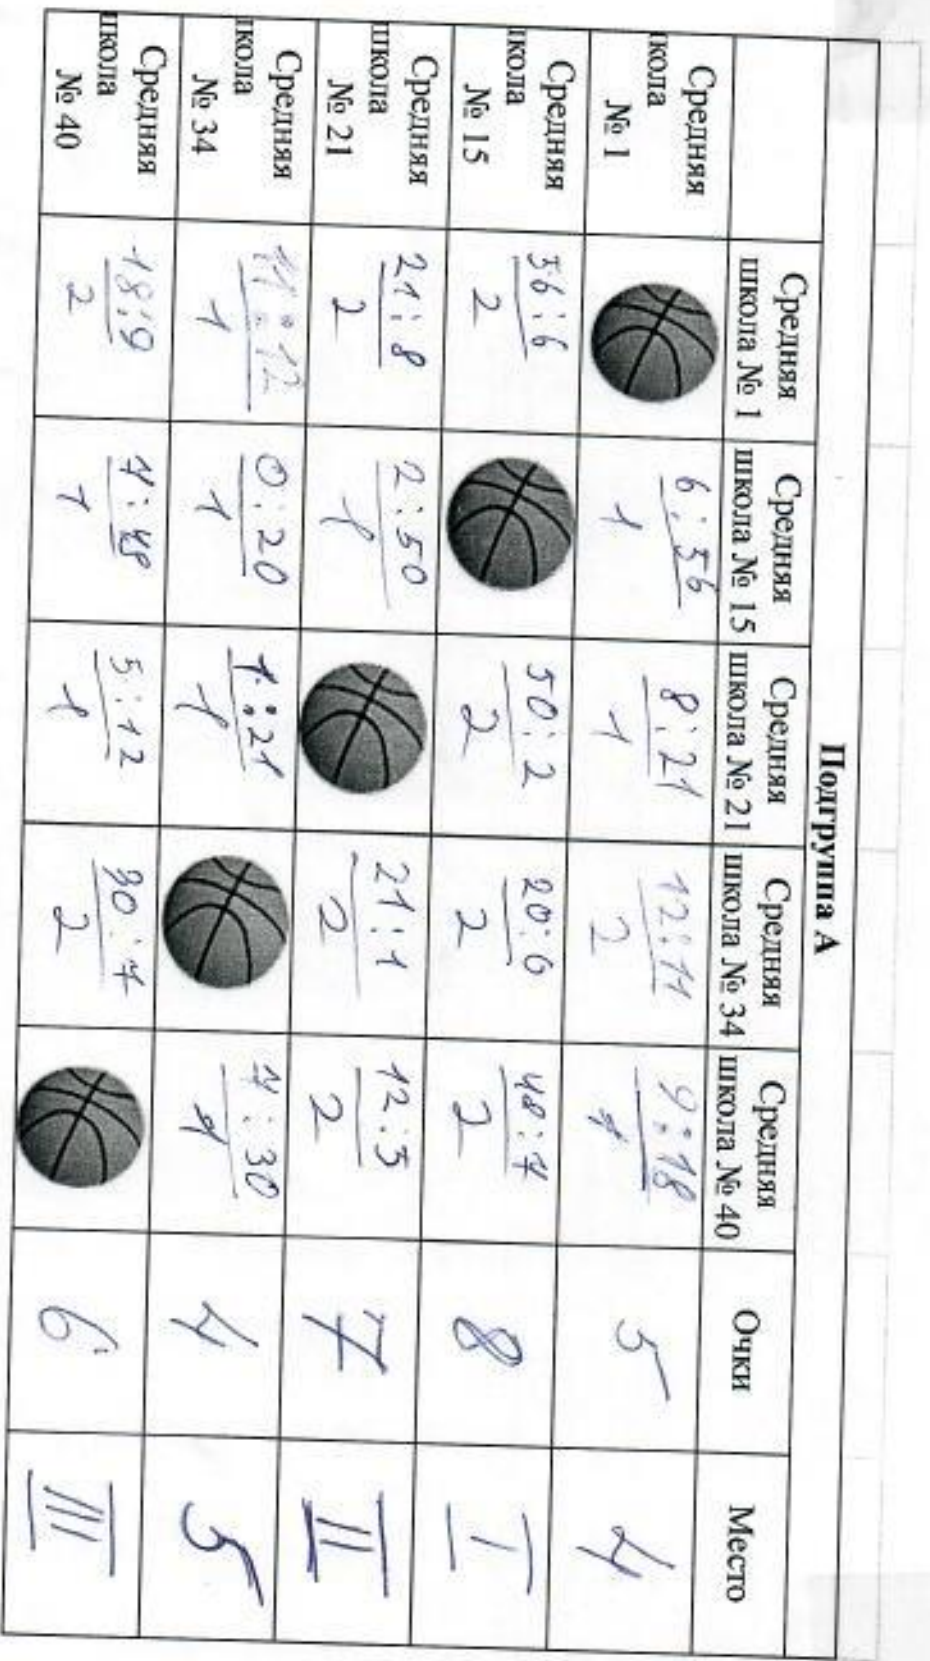 Подгруппа А
Средняя школа № 1 Средняя школа № 15 Средняя школа № 21 Средняя школа № 34 Средняя школа № 40 Очки Место
Средняя школа № 1 6:56 1 8:21 1 12:11 2 9:18 1 5 4
Средняя школа № 15 56:6 2 50:2 2 20:0 2 48:7 2 8 I
Средняя школа № 21 21:8 2 2:50 1 21:1 2 12:5 2 7 II
Средняя школа № 34 11:12 1 0:20 1 1:21 1 7:30 1 4 5
Средняя школа № 40 18:9 2 7:48 1 5:12 1 30:7 2 6 III